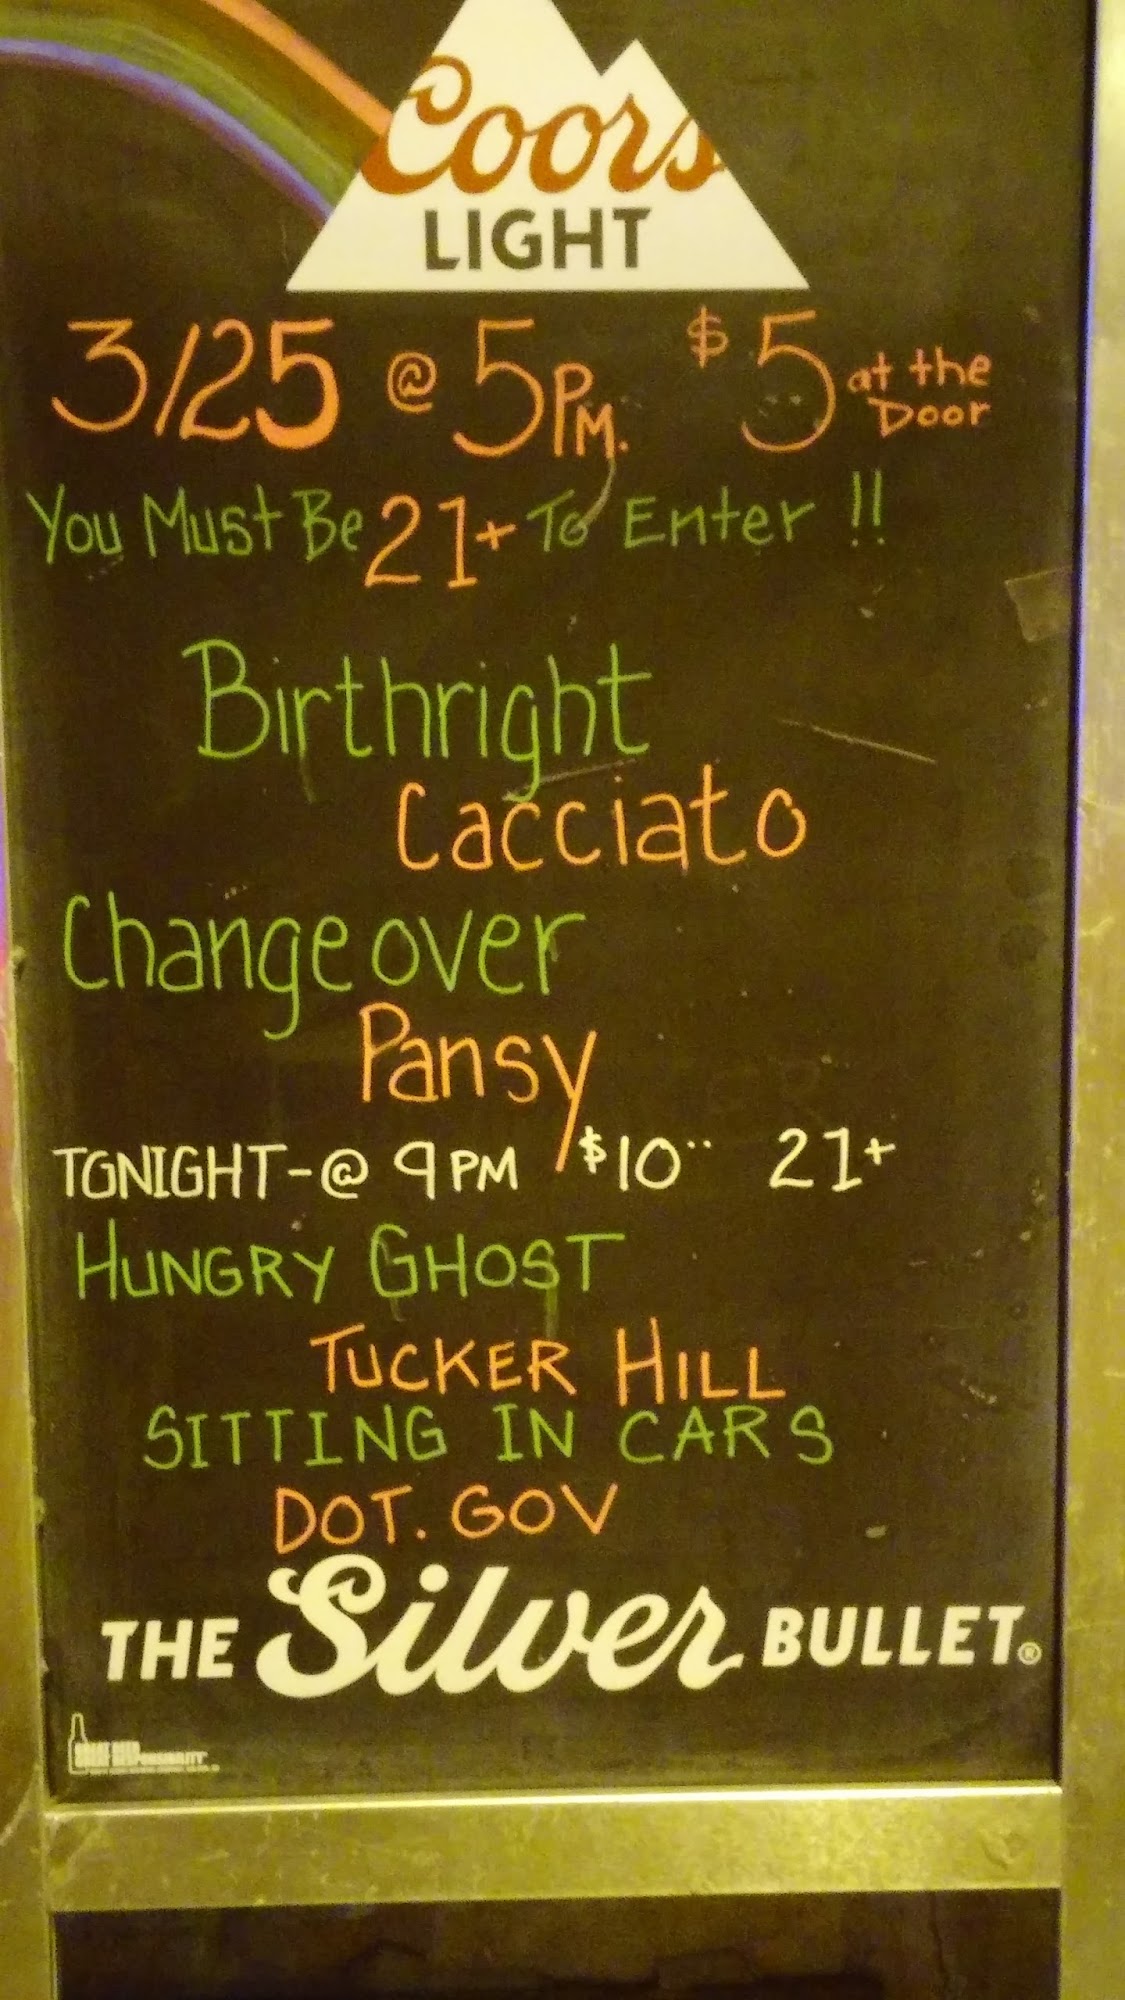 Coors
LIGHT
3/25 @ 5PM. $5 at the Door
You Must Be 21+ To Enter !!
Birthright
Cacciato
Changeover
Pansy
TONIGHT-@ 9PM $10.. 21+
HUNGRY GHOST
TUCKER HILL
SITTING IN CARS
DOT. GOV
THE Silver BULLET®